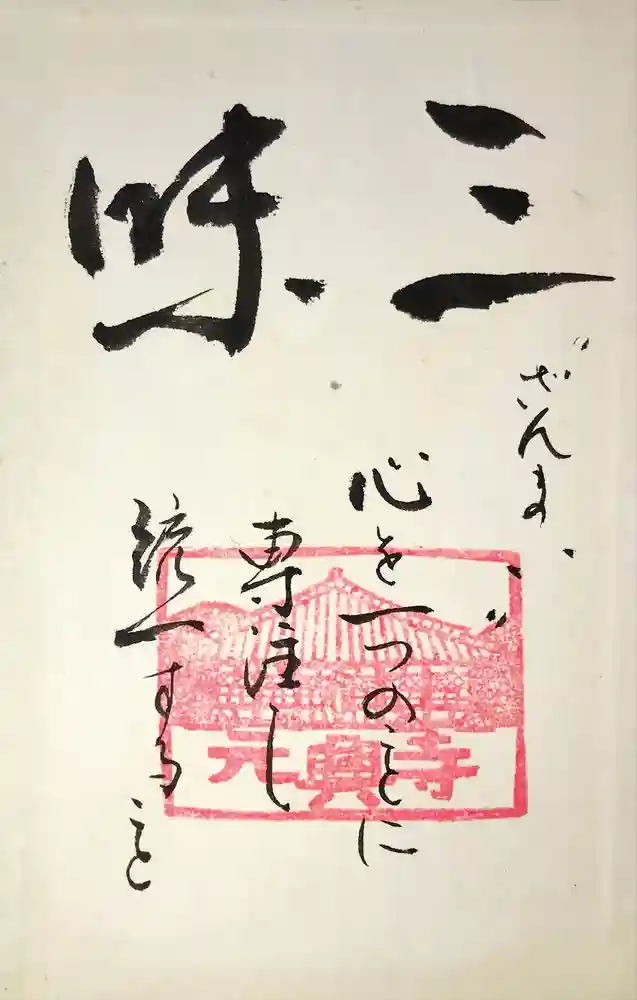 三昧
ざんまい
心を一つのことに
専注し
統一すること
元興寺